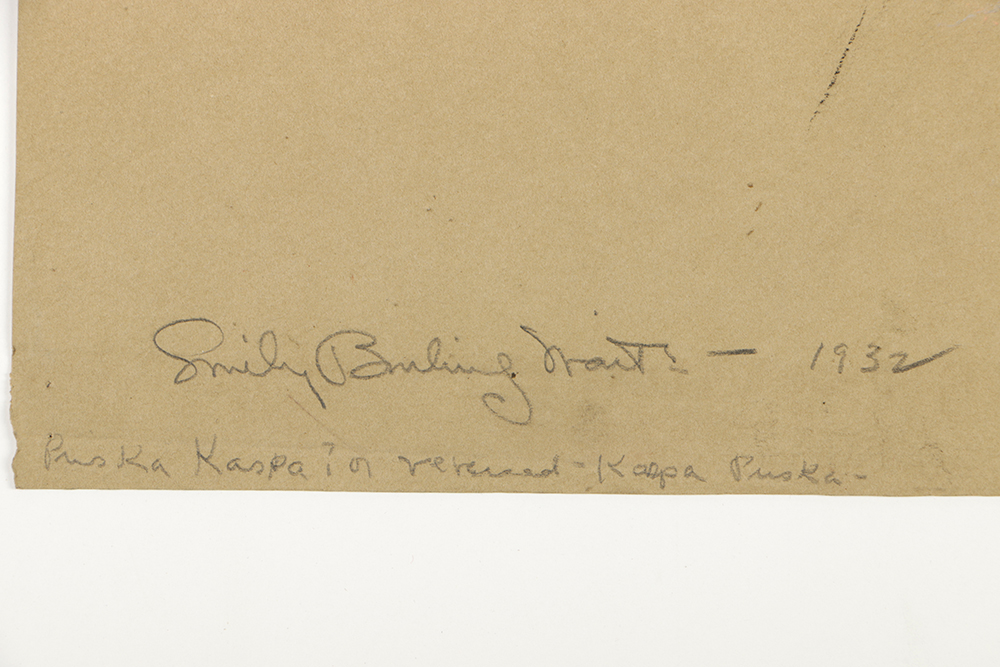 Emily Burling Waite – 1932
Puska Kaspa? or reversed - Kaspa Puska -